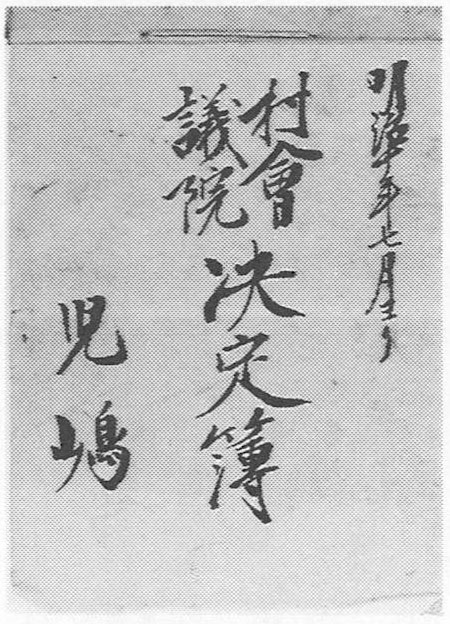 明治十年七月ヨリ
村會
議院
决定簿
児嶋